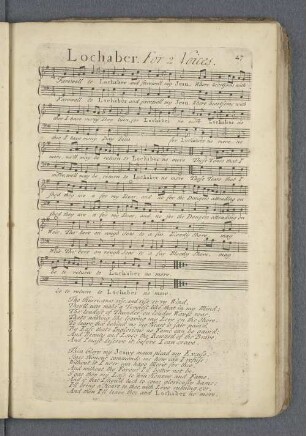 Lochaber. For 2 Voices.
47
Farewell to Lochaber and farewell my Jean, Where heartsome with
Farewell to Lochaber and farewell my Jean, Where heartsome with
thee I have many Days been, for Lochaber no more, Lochaber no
thee I have many Days been for Lochaber no more, no
more, we'll may be return to Lochaber no more. These Tears that I
more, we'll may be return to Lochaber no more. These Tears that I
shed they are a' for my Dear, and no for the Dangers attending on
shed they are a' for my Dear, and no for the Dangers attending on
Wier, Tho' bore on rough Seas to a far bloody Shore, may
Wier Tho' bore on rough Seas to a far bloody Shore, may
be to return to Lochaber no more.
be to return to Lochaber no more.
Tho' Hurricanes rise, and rise ev'ry Wind,
They'll ne'er make a Tempest like that in my Mind;
Tho' loudest of Thunder on louder Waves roar,
That's nathing like leaving my Love on the Shore.
To leave thee behind me my Heart is sair pain'd,
By Ease that's Inglorious no Fame can be gain'd:
And Beauty and Love's the Reward of the Brave
And I must deserve it before I can crave.
Then Glory, my Jeany, maun plead my Excuse,
Since Honour commands me how can I refuse?
Without it I ne'er can have Merit for thee,
And without thy Favour I'd better not be.
I gae then my Lass to win Honour and Fame,
And if I should luck to come gloriously hame;
I'll bring a Heart to thee with Love running o'er,
And then I'll leave thee and Lochaber no more.